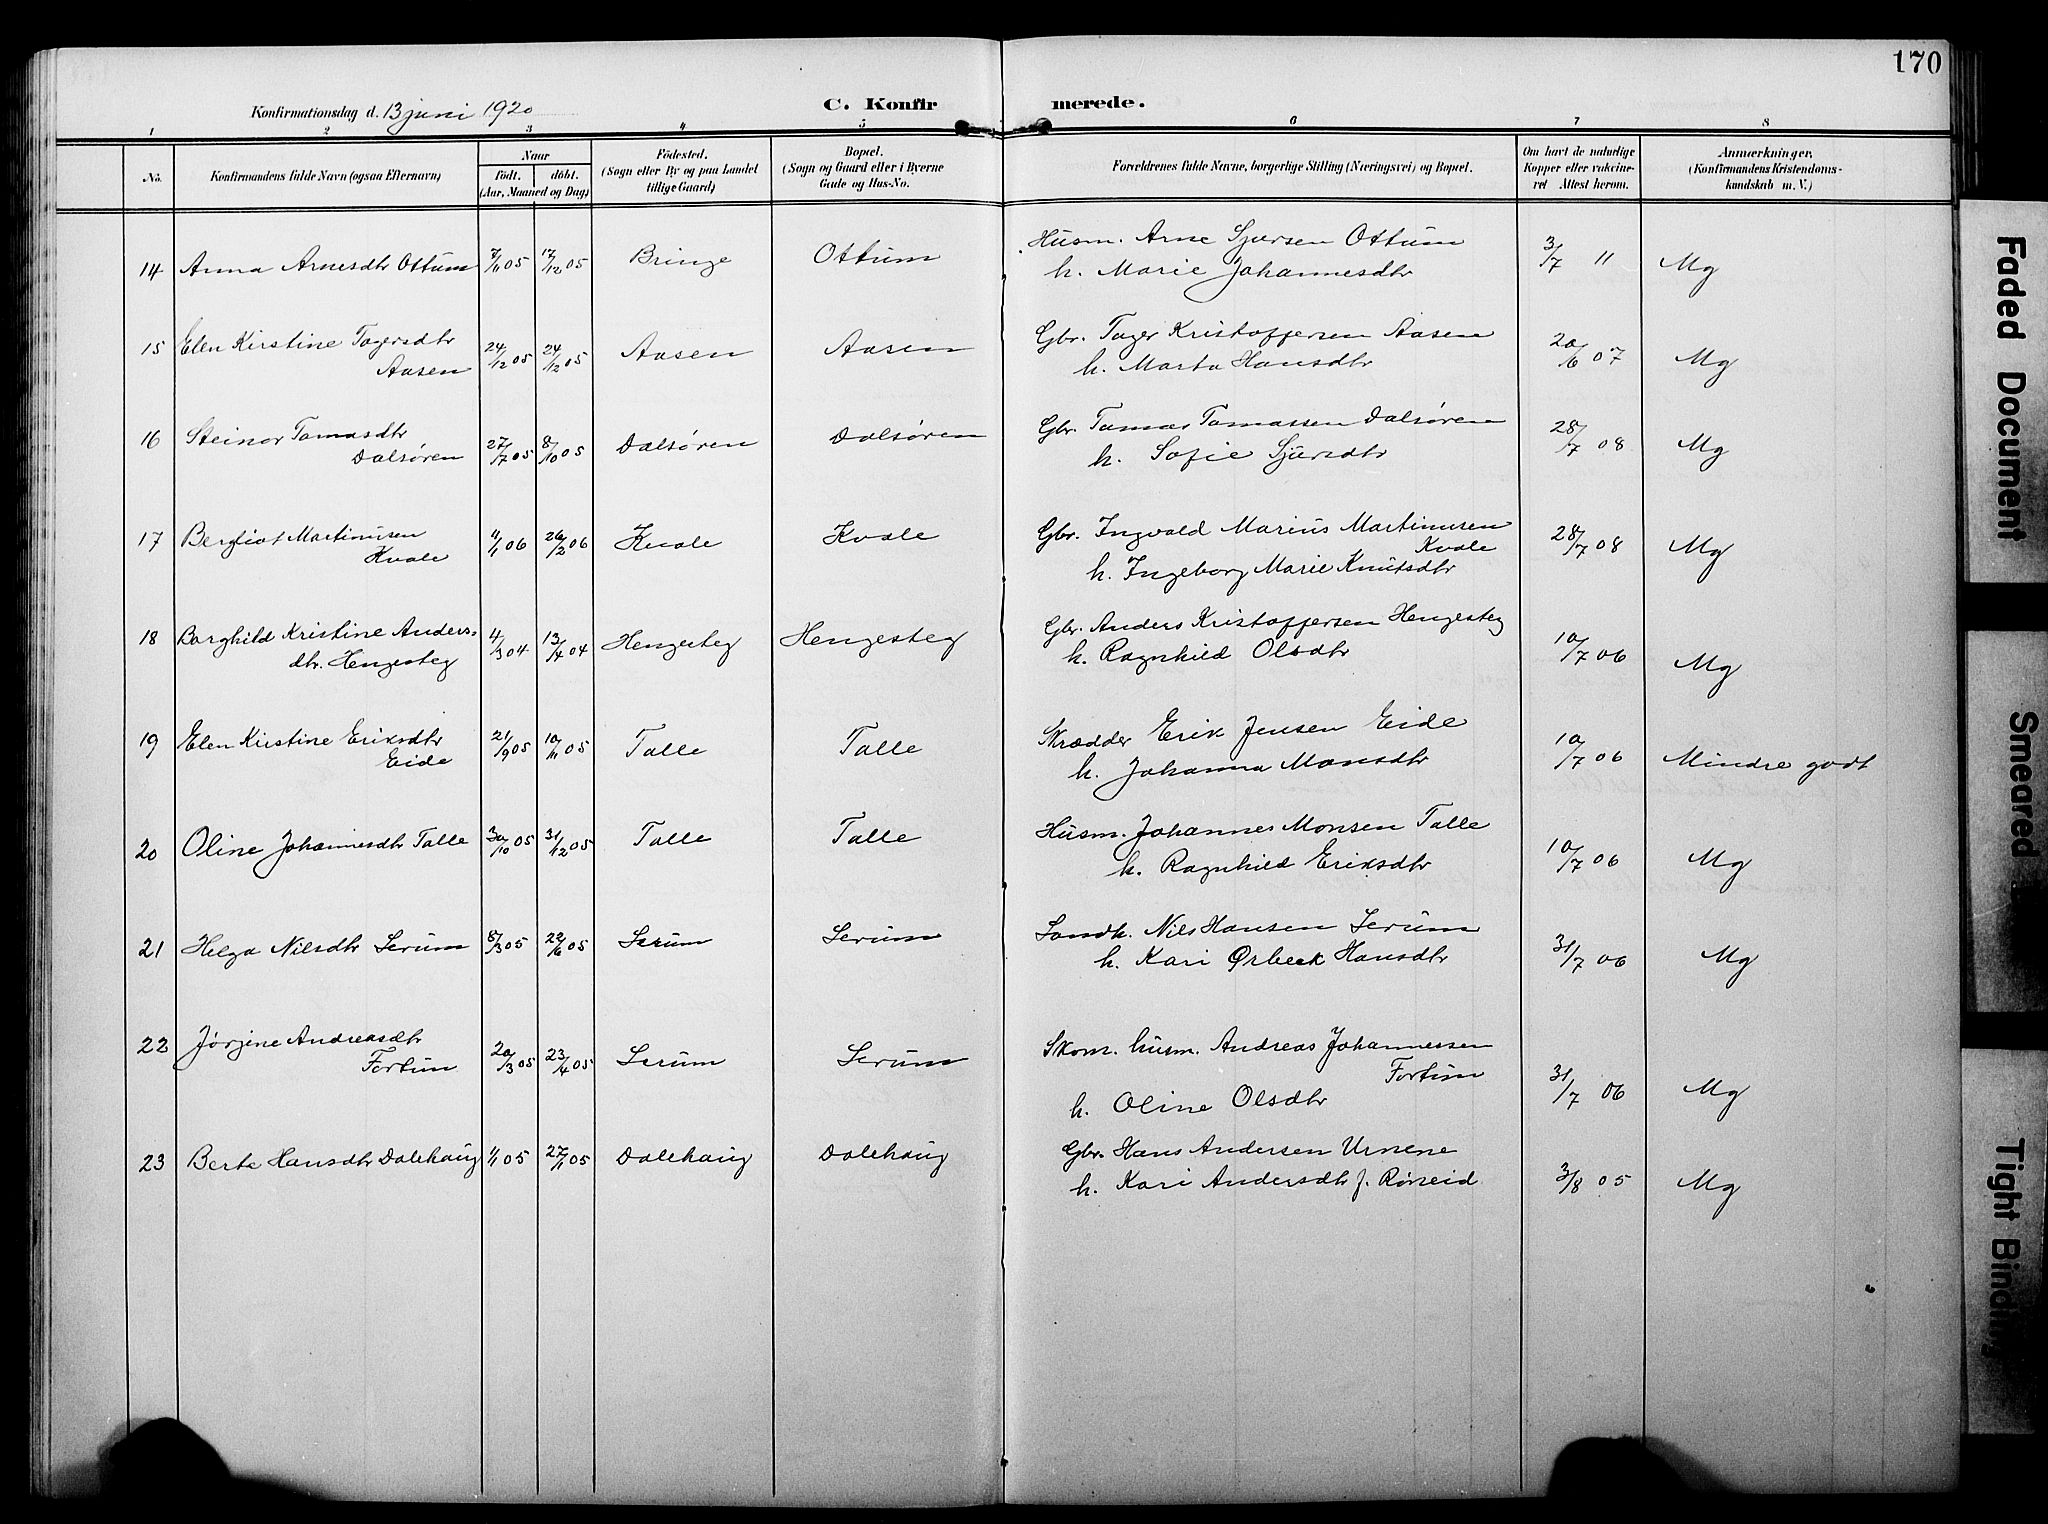 170
Konfirmationsdag d. 13 juni 1920
C. Konfirmerede.
1 2 3 4 5 6 7 8
No. Konfirmandens fulde Navn (ogsaa Efternavn) Naar født. døbt. (Aar, Maaned og Dag) Fødested. (Sogn eller By og paa Landet tillige Gaard) Bopæl. (Sogn og Gaard eller i Byerne Gade og Hus-No. Forældrenes fulde Navne, borgerlige Stilling (Næringsvei) og Bopæl. Om havt de naturlige Kopper eller vakcineret Attest herom. Anmærkninger. (Konfirmandens Kristendomskundskab m. V.)
14 Anna Arnesdtr Ottum 7/11 05 17/12 05 Bringe Ottum Husm. Arne Sjursen Ottum 3/7 11 Mg
h. Marie Johannesdtr
15 Elen Kirstine Tagersdtr 24/12 05 24/12 05 Aasen Aasen Gbr. Tager Kristoffersen Aasen 20/6 07 Mg
Aasen h. Marta Hansdtr
16 Steinor Tomasdtr 27/7 05 8/10 05 Dalsøren Dalsøren Gbr. Tomas Tomassen Dalsøren 28/7 08 Mg
Dalsøren h. Sofie Sjursdtr
17 Bergliot Martinusen 11/1 06 26/2 06 Kvale Kvale Gbr. Ingvald Marius Martinusen 28/7 08 Mg
Kvale Kvale
h. Ingeborg Marie Knutsdtr
18 Borghild Kristine Anders- 4/3 04 13/4 04 Hengesteg Hengesteg Gbr. Anders Kristoffersen Hengesteg 10/7 06 Mg
dtr. Hengesteg h. Ragnhild Olsdtr
19 Elen Kirstine Eriksdtr 21/9 05 10/11 05 Talle Talle Skrædder Erik Jensen Eide 10/7 06 Mindre godt
Eide h. Johanna Monsdtr
20 Oline Johannesdtr Talle 30/10 05 31/12 05 Talle Talle Husm. Johannes Monsen Talle 10/7 06 Mg
h. Ragnhild Eriksdtr
21 Helga Nilsdtr Lerum 8/3 05 22/6 05 Lerum Lerum Landh. Nils Hansen Lerum 31/7 06 Mg
h. Kari Ørbeck Hansdtr
22 Jørgine Andreasdtr 20/3 05 23/4 05 Lerum Lerum Skom. husm. Andreas Johannessen 31/7 06 Mg
Fortun Fortun
h. Oline Olsdtr
23 Berte Hansdtr Dalehaug 1/1 05 27/1 05 Dalehaug Dalehaug Gbr. Hans Andersen Urnene 3/8 05 Mg
h. Kari Andersdtr f. Røneid
Faded Document
Smeared
Tight Binding